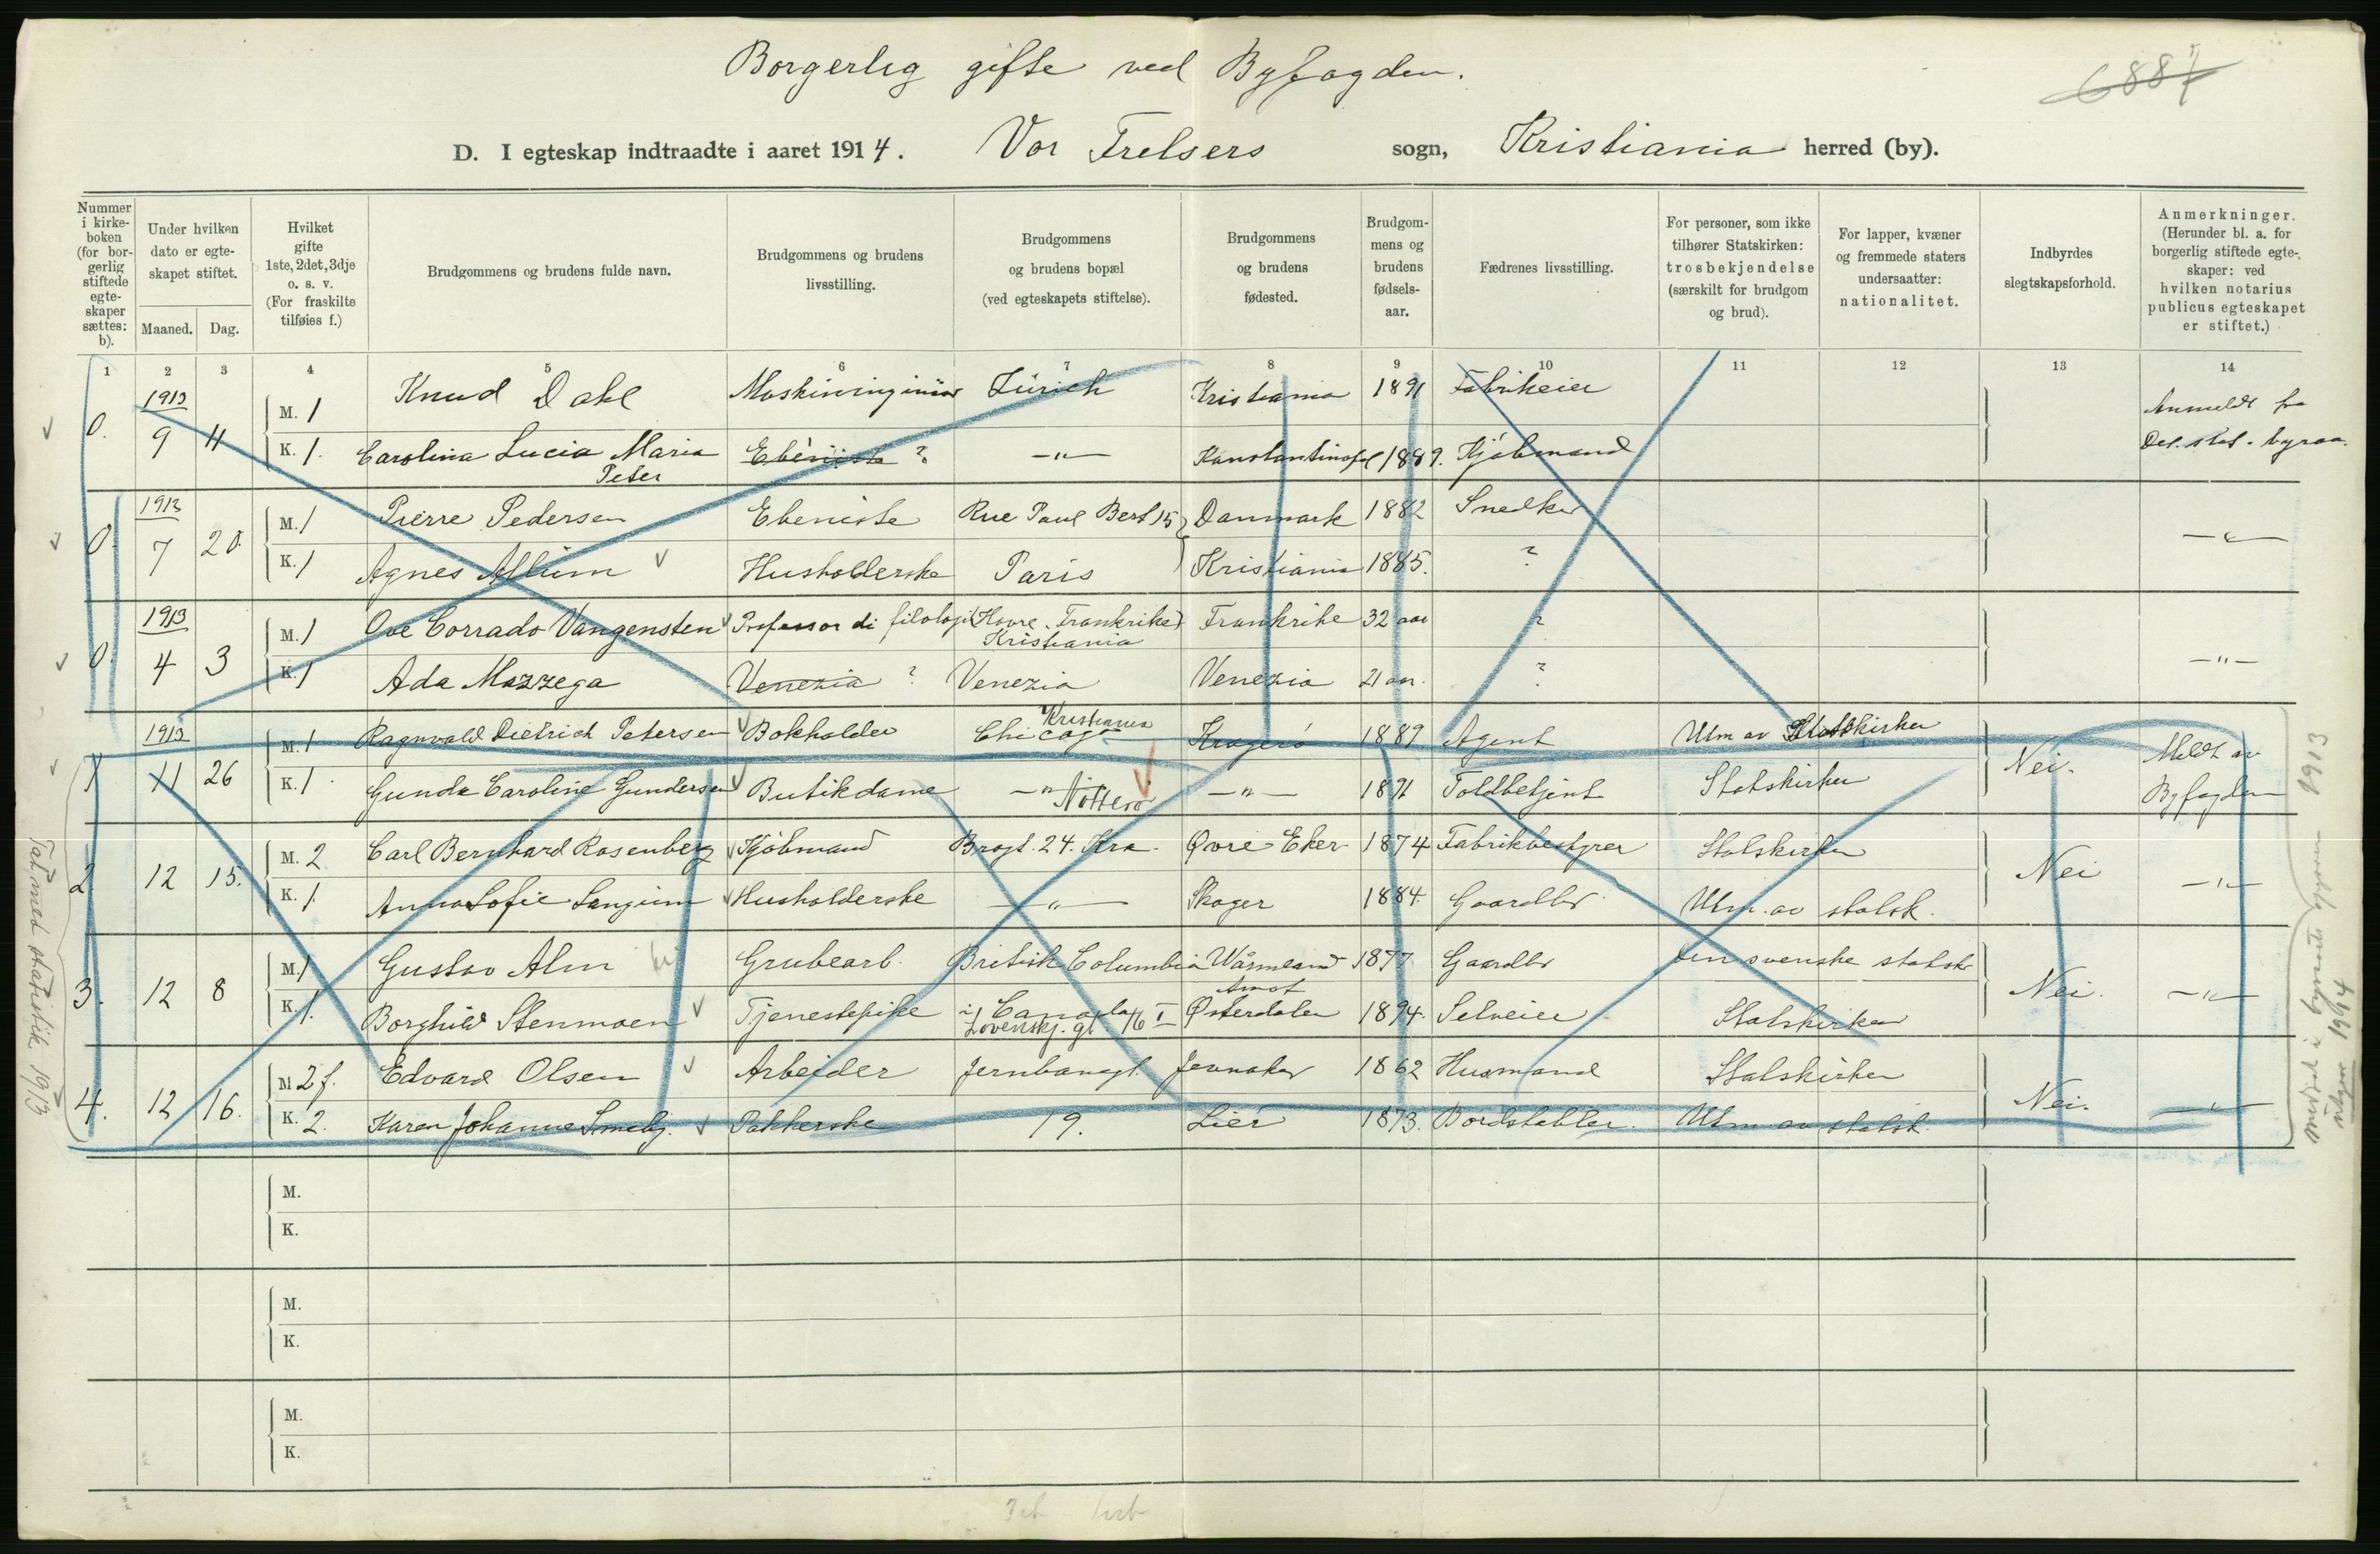 Borgerlig gifte ved Byfogden.
6887
D. I egteskap indtraadte i aaret 1914. Vor Frelsers sogn, Kristiania herred (by).
Nummer i kirkeboken (for borgerlig stiftede egteskaper sættes: b).
Under hvilken dato er egteskapet stiftet.
Maaned. Dag.
Hvilket gifte 1ste, 2det, 3dje o. s. v. (For fraskilte tilføies f.)
Brudgommens og brudens fulde navn.
Brudgommens og brudens livsstilling.
Brudgommens og brudens bopæl (ved egteskapets stiftelse).
Brudgommens og brudens fødested.
Brudgommens og brudens fødselsaar.
Fædrenes livsstilling.
For personer, som ikke tilhører Statskirken: trosbekjendelse (særskilt for brudgom og brud).
For lapper, kvæner og fremmede staters undersaatter: nationalitet.
Indbyrdes slegtskapsforhold.
Anmerkninger. (Herunder bl. a. for borgerlig stiftede egteskaper: ved hvilken notarius publicus egteskapet er stiftet.)
1 2 3 4 5 6 7 8 9 10 11 12 13 14
0. 1913 9 11 M. 1 Knud Dahl Maskiningeniør Zürich Kristiania 1891 Fabrikeier Anmeldt fra
K. 1. Carolina Lucia Maria Peter Ebéniste ? —"— Konstantinopel 1889. Kjöbmand Det. stat. byraa.
0. 1913 7 20. M. 1 Pierre Pedersen Ebeniste Rue Paul Bert 15 Danmark 1882 Snedker —"—
K. 1 Agnes Allum Husholderske Paris Kristiania 1885. ?
0. 1913 4 3 M. 1 Ove Corrado Vangensten Professor di filologi (Havre, Frankrike) Kristiania Frankrike 32 aar ?
K. 1 Ada Mazzega Venezia ? Venezia Venezia 21 aar. ? —"—
1 1913 11 26 M. 1 Ragnvald Dietrich Petersen Bokholder Chicago Kristiania Kragerö 1889 Agent Utm av Statskirken Nei. Meldt av
K. 1. Gunda Caroline Gundersen Butikdame —"— Nötterö —"— 1891 Toldbetjent Statskirken Byfogden
2 12 15. M. 2 Carl Bernhard Rosenberg Kjöbmand Brogt. 24. Kra. Øvre Eker 1874 Fabrikbestyrer Statskirken Nei —"—
K. 1. Anna Sofie Langum Husholderske —"— Skoger 1884. Gaardbr Utm. av statsk.
3. 12 8 M. 1 Gustav Alm Grubearb. British Columbia Wärmland 1877 Gaardbr Den svenske statsk Nei. —"—
K. 1. Borghild Stenmoen Tjenestepike i Canada Lovenskj. gt. 16 I Amot Østerdalen 1894. Selveier Statskirken
4. 12 16. M 2 f. Edvard Olsen Arbeider Jernbanegt. Jevnaker 1862 Husmand Statskirken Nei. —"—
K. 2. Karen Johanne Smeby. Pakkerske 19. Lier 1873. Bordstabler. Utm av statsk.
M.
K.
M.
K.
M.
K.
Tat med statistik 1913
medtat i byraets oppgaver 1913
1914